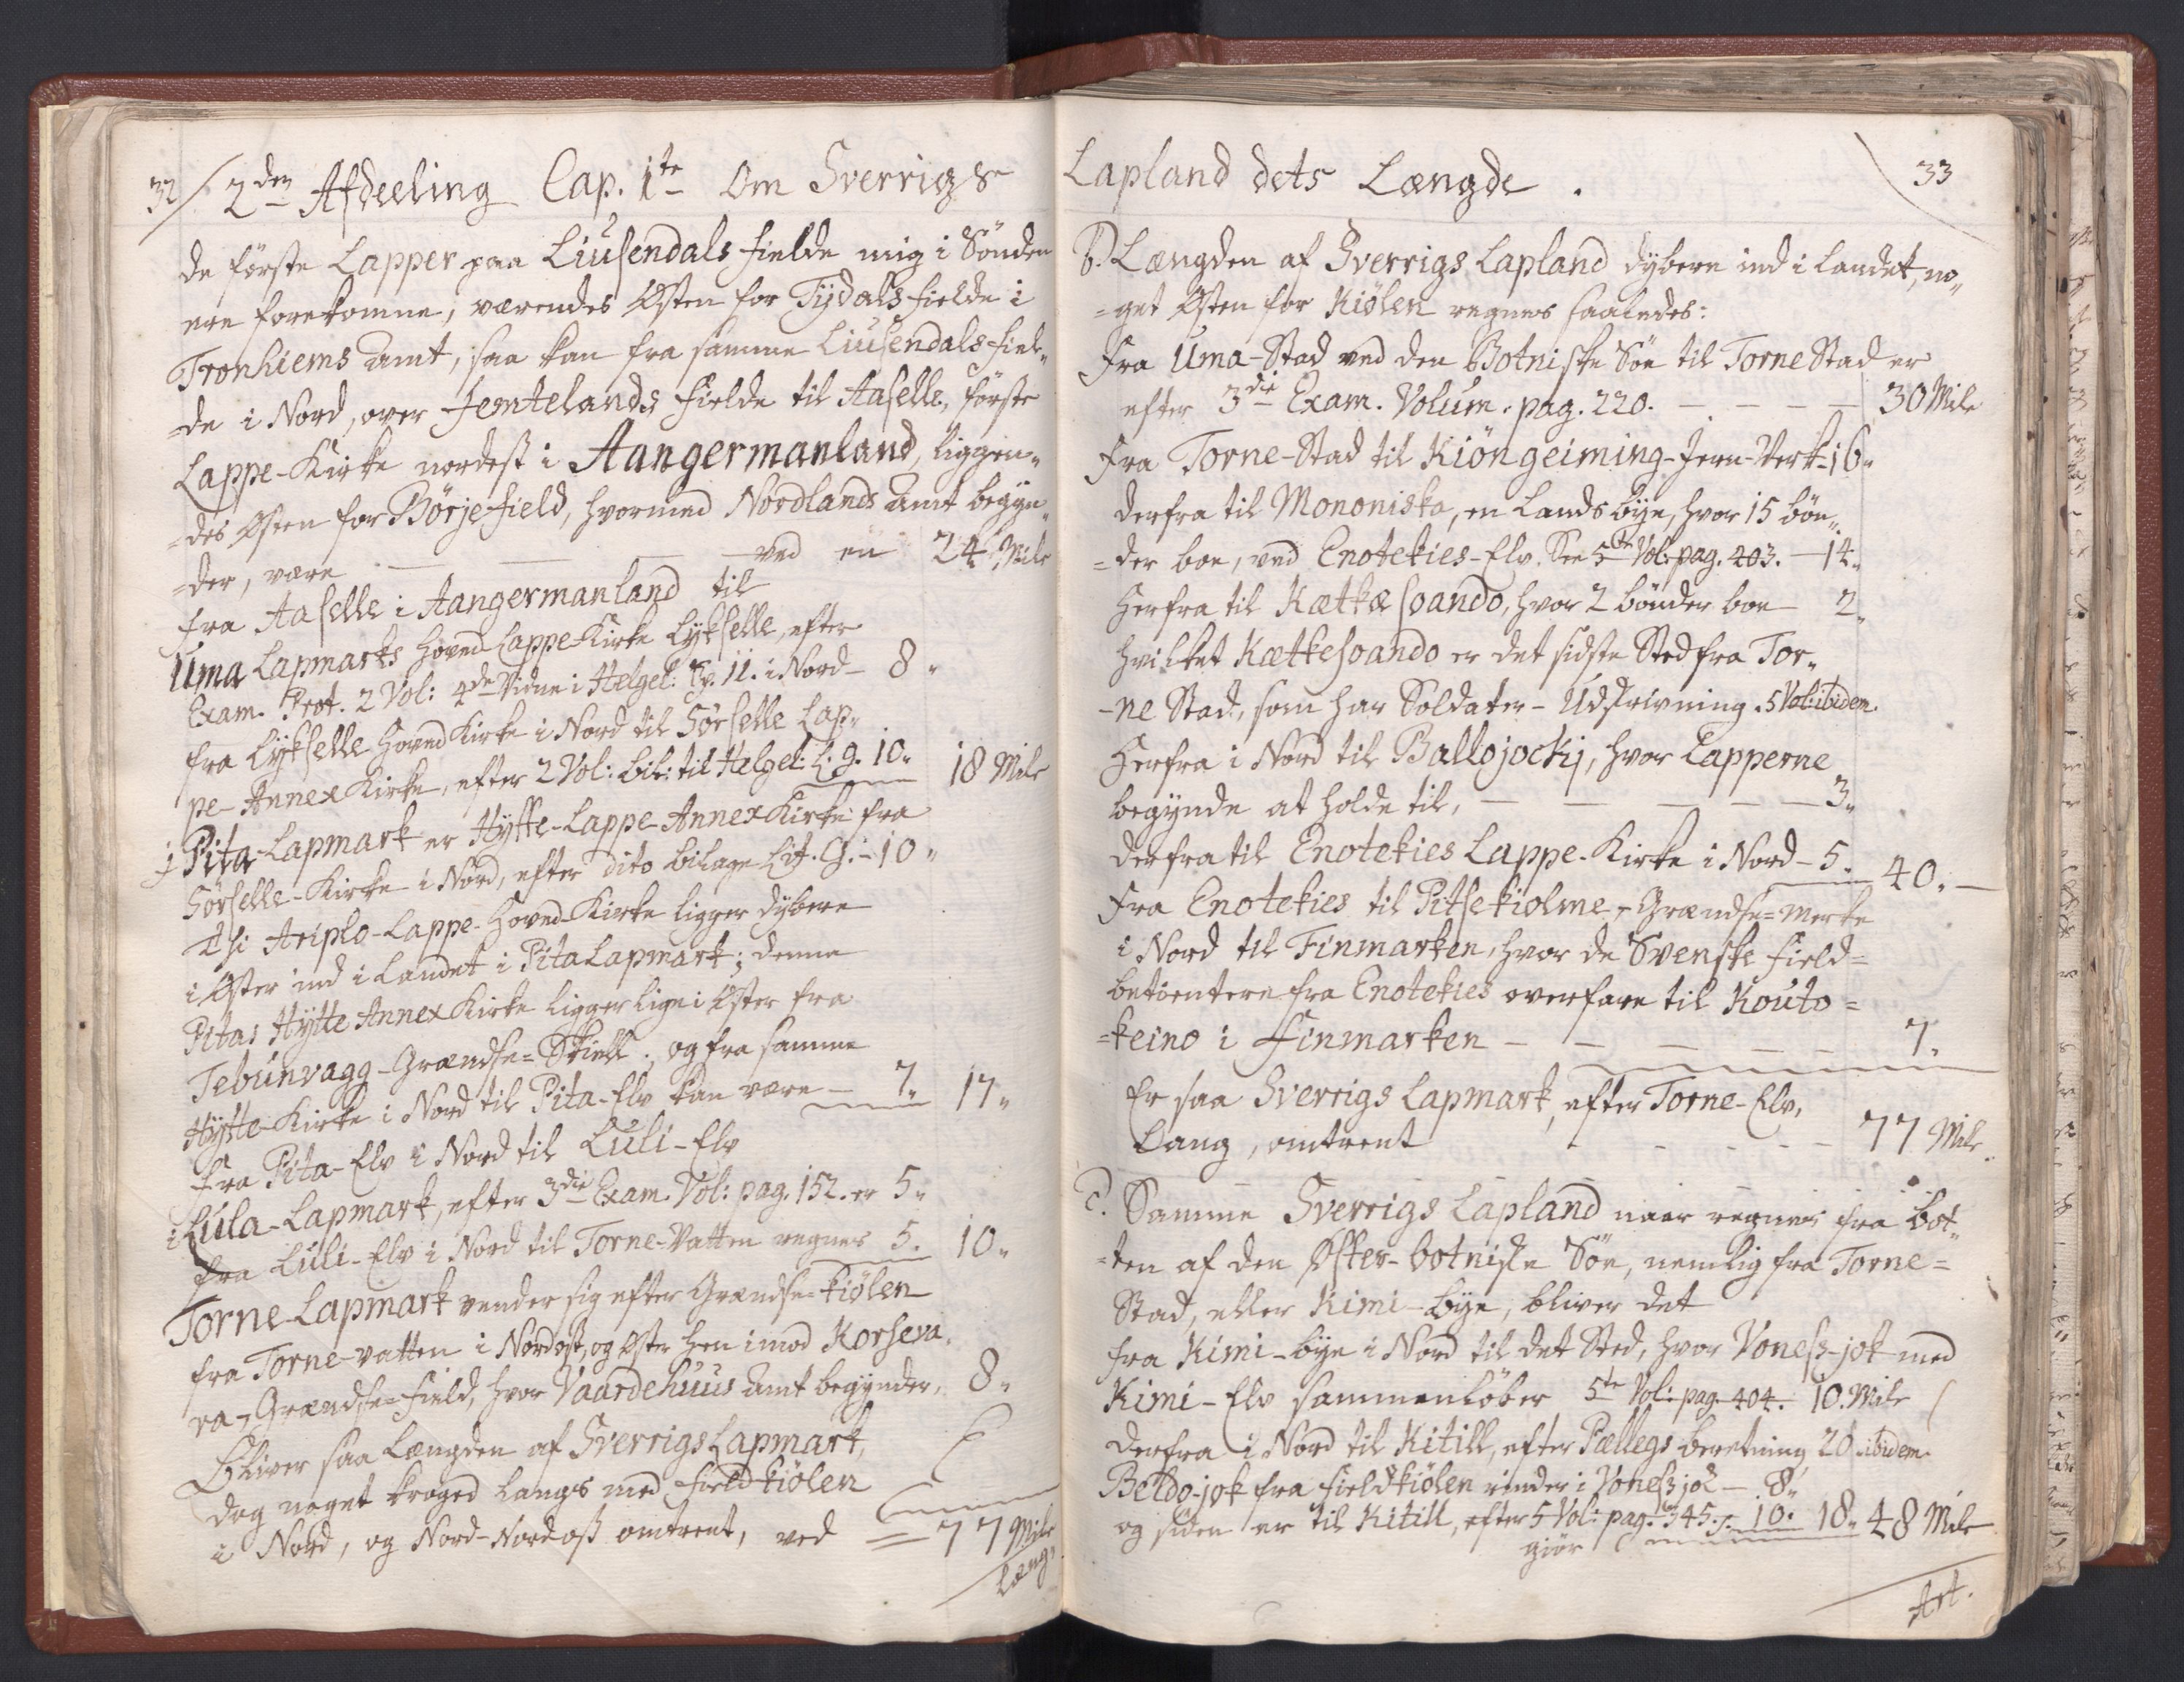 32 / 2den Afdeeling Cap. 1te Om Sverrigs
de förste Lapper paa Liusendals fielde mig i Sønden
ere forekomne, værendes Østen for Tydals fielde i
Tronhiems Amt, saa kan fra samme Liusendals fiel„
„de i Nord, over Jemtelands fielde til Aaselle, förste
Lappe-Kirke nordest i Aangermanland, liggen„
„des Østen for Börje-field, hvormed Nordlands Amt begyn„
„der, være — — — ved en 24 Mile
fra Aaselle i Aangermanland til
Uma Lapmarks Hoved Lappe-Kirke Lykselle, efter
Exam. Prot. 2 Vol: 4de Vidne i Helgel: Sp. 11. i Nord — 8 „
fra Lykselle Hoved Kirke i Nord til Sörselle Lap„
pe-Annex Kirke, efter 2 Vol: bil: til Helgel: L: g. 10„ 18 Mile
i Pita-Lapmark er Hytte-Lappe-Annex Kirke fra
Sörselle-Kirke i Nord, efter dito bilage Lit. G. — 10 „
Thi Ariplo-Lappe-Hoved-Kirke ligger dybere
i Øster ind i Landet i Pita Lapmark; denne
Pitas Hytte Annex Kirke ligger lige i Øster fra
Tebunvagg-Grændse-Skiell, og fra samme
Hytte-Kirke i Nord til Pita-Elv kan være — 7„ 17„
fra Pita-Elv i Nord til Luli-Elv
i Lula-Lapmark, efter 3die Exam. Vol: pag. 152. er 5„
fra Luli-Elv i Nord til Torne-Vatten regnes 5. 10„
Torne-Lapmark vender sig efter Grændse-Kiølen
fra Torne-vatten i Nordost, og Øster hen imod Korseva„
ra-Grændse-field, hvor Vaardehuus Amt begynder, 8„
Bliver saa Længden af Sverrigs Lapmark,
dog noget kroged langs med field kiölen
i Nord, og Nord-Nordost omtrent, ved = 77 Mile
Lang,
Lapland dets Længde. 33
b. Længden af Sverrigs Lapland dybere ind i Landet, no„
„get Østen for Kiölen regnes saaledes:
Fra Uma-Stad ved den Botniske Söe til Torne Stad er
efter 3die Exam. Volum. pag. 220. — — — — 30 Mile
Fra Torne-Stad til Kiöngeiming-Jern-Verk 16„
derfra til Mononiska, en Lands bye, hvor 15 bön„
„der boe, ved Enotekies-Elv. See 5te Vol: pag. 403. — 14„
Herfra til Kætkæsoando, hvor 2 bönder boe — 2„
hvilket Kætkesoando er det sidste Sted fra Tor„
„ne Stad, som har Soldater-Udskrivning. 5 Vol: ibidem.
Herfra i Nord til Ballojocki, hvor Lapperne
begynde at holde til, — — — — — 3„
derfra til Enotekies Lappe-Kirke i Nord — 5. 40. —
Fra Enotekies til Pitsekiolme, Grændse-Merke
i Nord til Finmarken, hvor de Svenske field-
betientere fra Enotekies overfare til Kouto-
-keino i Finmarken — — — — — 7.
Er saa Sverrigs Lapmark, efter Torne-Elv,
Lang, omtrent - - - - - 77 Mile.
c. Samme Sverrigs Lapland naar regnes fra Bot„
„ten af den Øster-botniske Söe, nemlig fra Torne-
Stad, eller Kimi-bye, bliver det
fra Kimi-bye i Nord til det Sted, hvor Voness-jok med
Kimi-Elv sammenlöber 5te Vol: pag. 404. 10. Mile
derfra i Nord til Kitill, efter Pællegs beretning 20 ibidem.
Beldo-jok fra field kiölen rinder i Voness jok — 8„
og siden er til Kitill, efter 5 Vol: pag. 345. 10. 18„ 48 Mile
giör
Art.